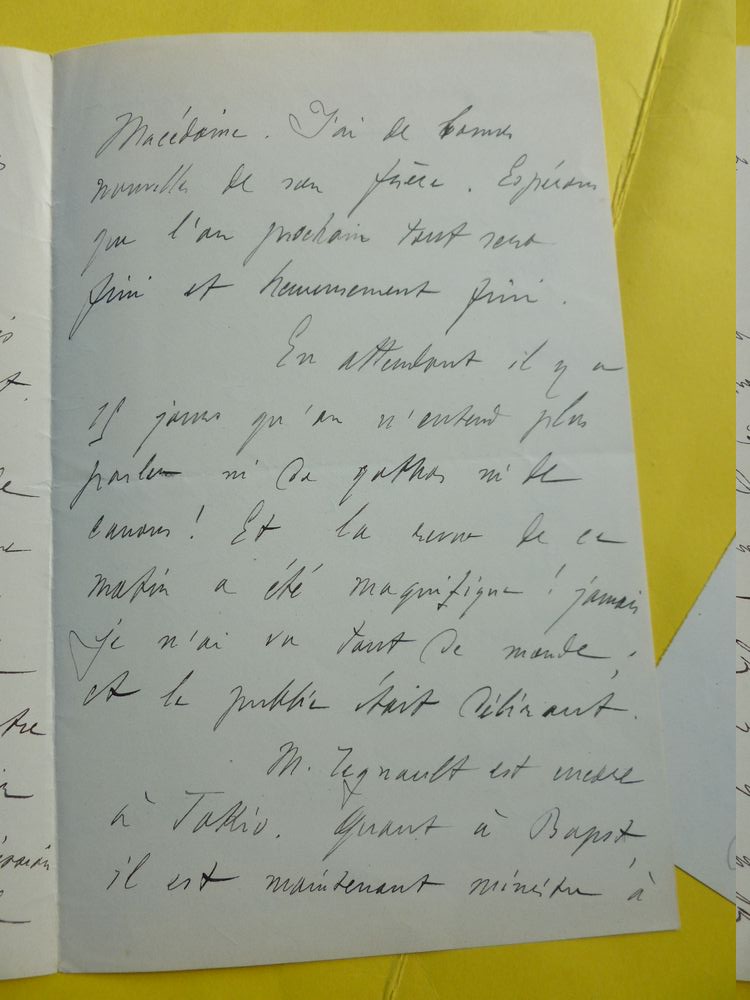 Macédoine. J'ai de bonnes
nouvelles de son frère. Espérons
que l'an prochain tout sera
fini et heureusement fini.
En attendant il y a
15 jours qu'on n'entend plus
parler ni de gothas ni de
canons! Et la revue de ce
matin a été magnifique! jamais
je n'ai vu tant de monde,
et le public était délirant.
M. Regnault est encore
à Tokio. Quant à Bapst
il est maintenant ministre à